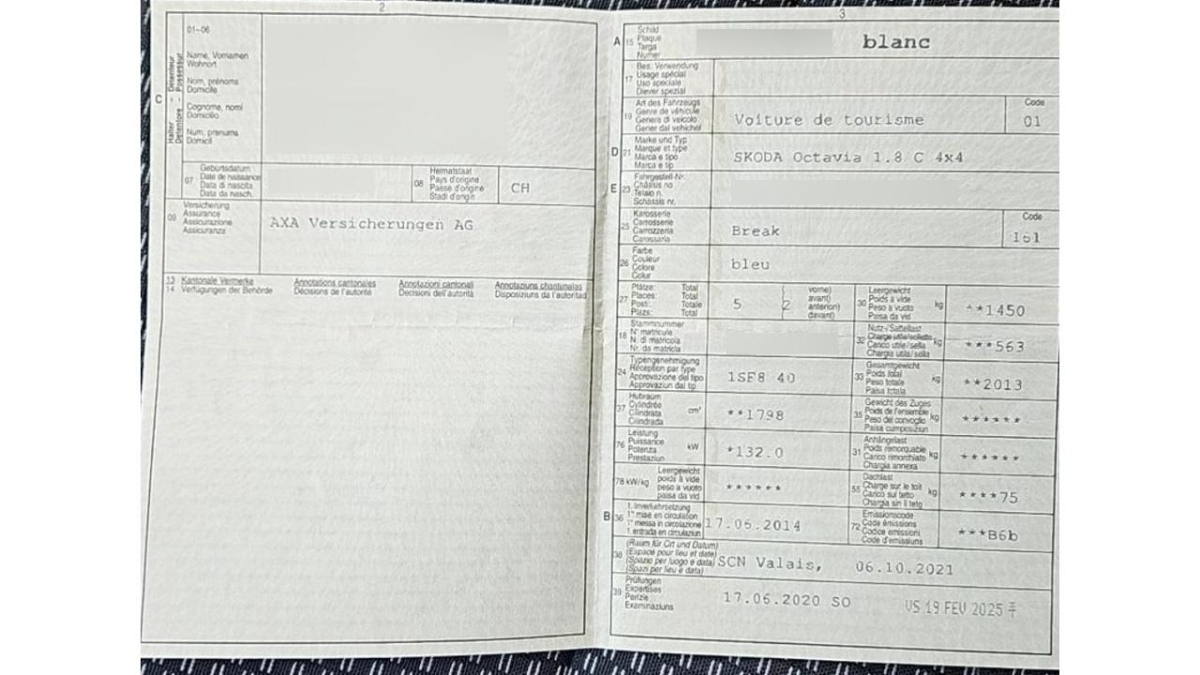 2
01-06
Halter - Détenteur
Detentore - Possessur
Name, Vornamen
Wohnort
C
Nom, prénoms
Domicile
Cognome, nomi
Domicilio
Num, prenums
Domicil
07
Geburtsdatum
Date de naissance
Data di nascita
Data da nasch.
08
Heimatstaat
Pays d'origine
Paese d'origine
Stadi d'origin
CH
09
Versicherung
Assurance
Assicurazione
Assicuranza
AXA Versicherungen AG
13 Kantonale Vermerke
14 Verfügungen der Behörde
Annotations cantonales
Décisions de l'autorité
Annotazioni cantonali
Decisioni dell'autorità
Annotaziuns chantunalas
Disposiziuns da l'autoritad
3
A 15
Schild
Plaque
Targa
Numer
blanc
17
Bes. Verwendung
Usage spécial
Uso speciale
Diever spezial
19
Art des Fahrzeugs
Genre de véhicule
Genere di veicolo
Gener dal vehichel
Voiture de tourisme
Code
01
D 21
Marke und Typ
Marque et type
Marca e tipo
Marca e tip
SKODA Octavia 1.8 C 4x4
E 23
Fahrgestell-Nr.
Châssis no
Telaio n.
Schassis nr.
25
Karosserie
Carrosserie
Carrozzeria
Carossaria
Break
Code
151
26
Farbe
Couleur
Colore
Colur
bleu
27
Plätze: Total
Places: Total
Posti: Totale
Plazs: Total
5
2
vorne)
avant)
anteriori)
davant)
30
Leergewicht
Poids à vide
Peso a vuoto
Paisa da vid
kg
**1450
18
Stammnummer
N° matricule
N. di matricola
Nr. da matricla
32
Nutz-/Sattellast
Charge utile/sellette
Carico utile/sella
Chargia utila/sella
kg
***563
24
Typengenehmigung
Réception par type
Approvazione del tipo
Approvaziun dal tip
1SF8 40
33
Gesamtgewicht
Poids total
Peso totale
Paisa totala
kg
**2013
37
Hubraum
Cylindrée
Cilindrata
Cilindrada
cm³
**1798
35
Gewicht des Zuges
Poids de l'ensemble
Peso del convoglio
Paisa cumposiziun
kg
******
76
Leistung
Puissance
Potenza
Prestaziun
kW
*132.0
31
Anhängelast
Poids remorquable
Carico rimorchiato
Chargia annexa
kg
******
78 kW/kg
Leergewicht
poids à vide
peso a vuoto
paisa da vid
******
55
Dachlast
Charge sur le toit
Carico sul tetto
Chargia sin il tetg
kg
****75
B 36
1. Inverkehrsetzung
1re mise en circulation
1a messa in circolazione
1. entrada en circulaziun
17.06.2014
72
Emissionscode
Code émissions
Codice emissioni
Code d'emissiuns
***B6b
38
(Raum für Ort und Datum)
(Espace pour lieu et date)
(Spazio per luogo e data)
(Spazi per lieu e data)
SCN Valais, 06.10.2021
39
Prüfungen
Expertises
Perizie
Examinaziuns
17.06.2020 SO
VS 19 FEV 2025